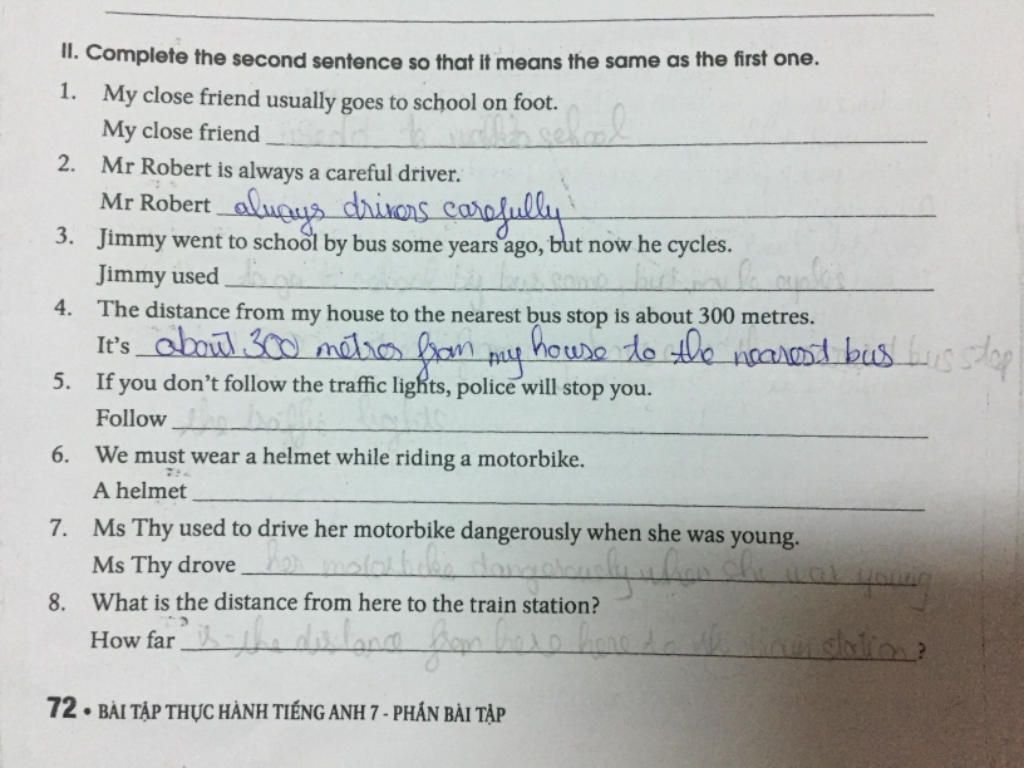 II. Complete the second sentence so that it means the same as the first one.
1. My close friend usually goes to school on foot.
My close friend to walk school
2. Mr Robert is always a careful driver.
Mr Robert always drivers carefully
3. Jimmy went to school by bus some years ago, but now he cycles.
Jimmy used to go to school by bus some but
4. The distance from my house to the nearest bus stop is about 300 metres.
It's about 300 metres from my house to the nearest bus bus stop
5. If you don't follow the traffic lights, police will stop you.
Follow the traffic lights
6. We must wear a helmet while riding a motorbike.
A helmet
7. Ms Thy used to drive her motorbike dangerously when she was young.
Ms Thy drove her motorbike dangerously when she was young
8. What is the distance from here to the train station?
How far is the distance from here here to the train station ?
72 • BÀI TẬP THỰC HÀNH TIẾNG ANH 7 - PHẦN BÀI TẬP